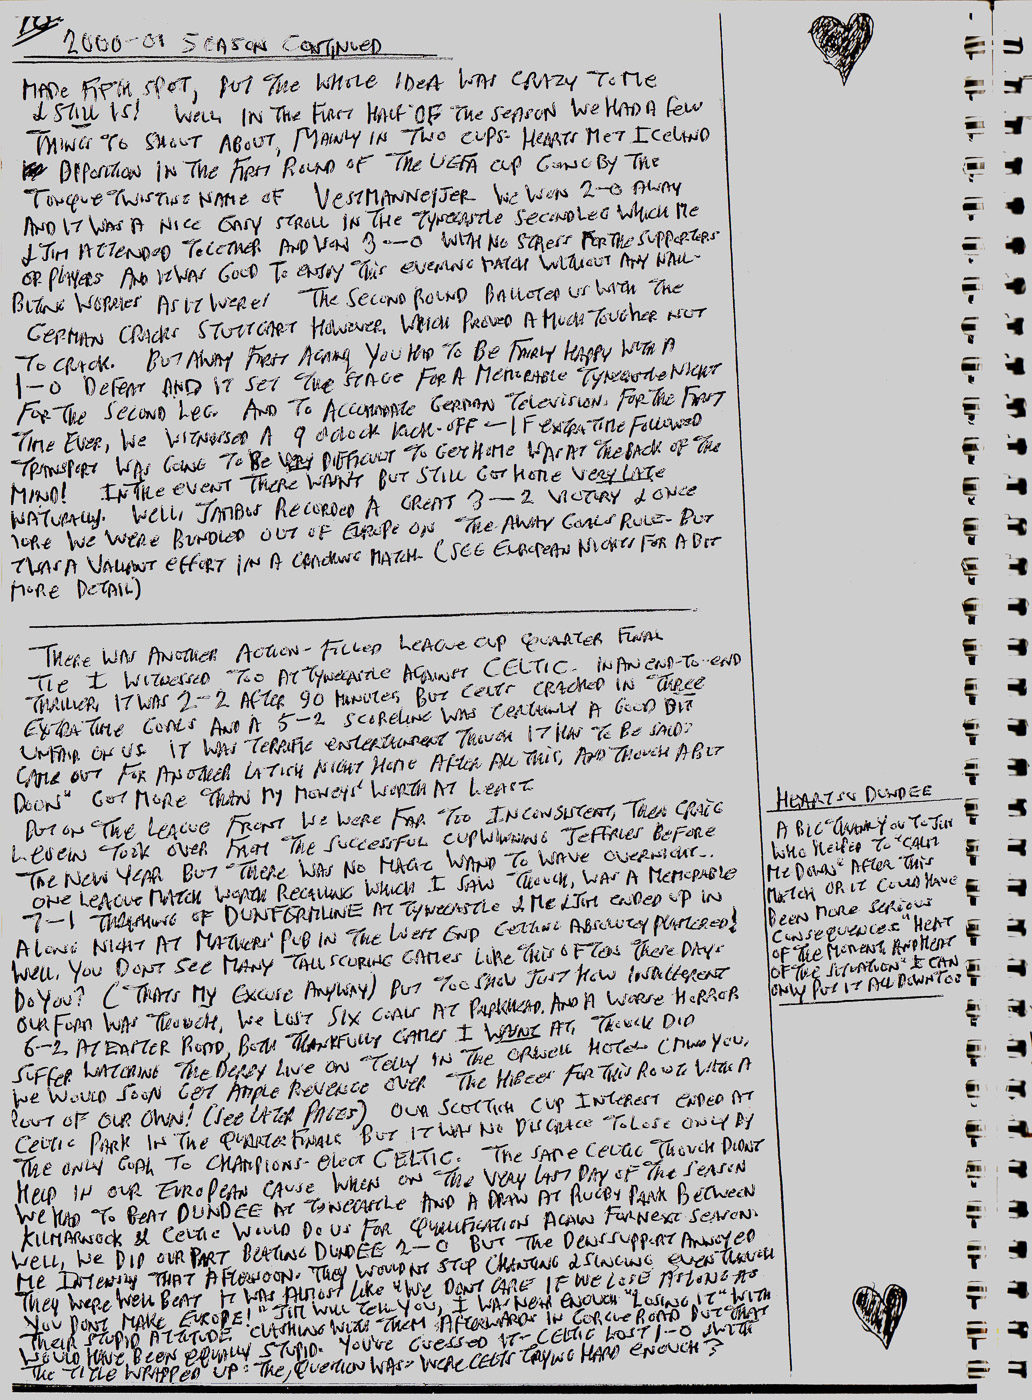 10
2000-01 SEASON CONTINUED
MADE FIFTH SPOT, BUT THE WHOLE IDEA WAS CRAZY TO ME
& STILL IS! WELL IN THE FIRST HALF OF THE SEASON WE HAD A FEW
THINGS TO SHOUT ABOUT, MAINLY IN TWO CUPS- HEARTS MET ICELAND
OPPOSITION IN THE FIRST ROUND OF THE UEFA CUP GOING BY THE
TONGUE TWISTING NAME OF VESTMANNEIJER WE WON 2-0 AWAY
AND IT WAS A NICE EASY STROLL IN THE TYNECASTLE SECOND LEG WHICH ME
& JIM ATTENDED TOGETHER AND WON 3-0 WITH NO STRESS FOR THE SUPPORTERS
OR PLAYERS AND IT WAS GOOD TO ENJOY THIS EVENING MATCH WITHOUT ANY NAIL-
BITING WORRIES AS IT WERE! THE SECOND ROUND BALLOTED US WITH THE
GERMAN CRACKS STUTTGART HOWEVER, WHICH PROVED A MUCH TOUGHER NUT
TO CRACK. BUT AWAY FIRST AGAIN, YOU HAD TO BE FAIRLY HAPPY WITH A
1-0 DEFEAT AND IT SET THE STAGE FOR A MEMORABLE TYNECASTLE NIGHT
FOR THE SECOND LEG. AND TO ACCOMADATE GERMAN TELEVISION, FOR THE FIRST
TIME EVER, WE WITNESSED A 9 O'CLOCK KICK-OFF - IF EXTRA TIME FOLLOWED
TRANSPORT WAS GOING TO BE VERY DIFFICULT TO GET HOME WAS AT THE BACK OF THE
MIND! IN THE EVENT THERE WASNT BUT STILL GOT HOME VERY LATE
NATURALLY. WELL, JAMBOS RECORDED A GREAT 3-2 VICTORY & ONCE
MORE WE WERE BUNDLED OUT OF EUROPE ON THE AWAY GOALS RULE- BUT
TWAS A VALIANT EFFORT IN A CRACKING MATCH. (SEE EUROPEAN NIGHTS FOR A BIT
MORE DETAIL)
THERE WAS ANOTHER ACTION-FILLED LEAGUE CUP QUARTER FINAL
TIE I WITNESSED TOO AT TYNECASTLE AGAINST CELTIC. IN AN END-TO-END
THRILLER, IT WAS 2-2 AFTER 90 MINUTES, BUT CELTS CRACKED IN THREE
EXTRA TIME GOALS AND A 5-2 SCORELINE WAS CERTAINLY A GOOD BIT
UNFAIR ON US. IT WAS TERRIFIC ENTERTAINMENT THOUGH IT HAS TO BE SAID-
CAME OUT FOR ANOTHER LATISH NIGHT HOME AFTER ALL THIS, AND THOUGH A BIT
DOON" GOT MORE THAN MY MONEYS' WORTH AT LEAST
BUT ON THE LEAGUE FRONT WE WERE FAR TOO INCONSISTENT, THEN CRAIG
LEVEIN TOOK OVER FROM THE SUCCESSFUL CUPWINNING JEFFRIES BEFORE
THE NEW YEAR BUT THERE WAS NO MAGIC WAND TO WAVE OVERNIGHT...
ONE LEAGUE MATCH WORTH RECALLING WHICH I SAW THOUGH, WAS A MEMORABLE
7-1 THRASHING OF DUNFERMLINE AT TYNECASTLE & ME & JIM ENDED UP IN
A LONG NIGHT AT MATHERS' PUB IN THE WEST END GETTING ABSOLUTELY PLASTERED!
WELL, YOU DONT SEE MANY TALL SCORING GAMES LIKE THIS OFTEN THESE DAYS
DO YOU? (THATS MY EXCUSE ANYWAY) BUT TO SHOW JUST HOW INDIFFERENT
OUR FORM WAS THOUGH, WE LOST SIX GOALS AT PARKHEAD, AND A WORSE HORROR
6-2 AT EASTER ROAD, BOTH THANKFULLY GAMES I WASNT AT, THOUGH DID
SUFFER WATCHING THE DERBY LIVE ON TELLY IN THE ORWELL HOTEL (MIND YOU,
WE WOULD SOON GET AMPLE REVENGE OVER THE HIBEES FOR THIS ROUT WITH A
ROUT OF OUR OWN! (SEE LATER PAGES) OUR SCOTTISH CUP INTEREST ENDED AT
CELTIC PARK IN THE QUARTER FINALS BUT IT WAS NO DISGRACE TO LOSE ONLY BY
THE ONLY GOAL TO CHAMPIONS-ELECT CELTIC. THE SAME CELTIC THOUGH DIDNT
HELP IN OUR EUROPEAN CAUSE WHEN ON THE VERY LAST DAY OF THE SEASON
WE HAD TO BEAT DUNDEE AT TYNECASTLE AND A DRAW AT RUGBY PARK BETWEEN
KILMARNOCK & CELTIC WOULD DO US FOR QUALIFICATION AGAIN FOR NEXT SEASON.
WELL, WE DID OUR PART BEATING DUNDEE 2-0 BUT THE DENS SUPPORT ANNOYED
ME INTENSELY THAT AFTERNOON. THEY WOULDNT STOP CHANTING & SINGING EVEN THOUGH
THEY WERE WELL BEAT IT WAS ALMOST LIKE "WE DONT CARE IF WE LOSE AS LONG AS
YOU DONT MAKE EUROPE!" JIM WILL TELL YOU, I WAS NEAR ENOUGH "LOSING IT" WITH
THEIR STUPID ATTITUDE CLASHING WITH THEM AFTERWARDS IN GORGIE ROAD BUT THAT
WOULD HAVE BEEN EQUALLY STUPID. YOU'VE GUESSED IT- CELTIC LOST 1-0 WITH
THE TITLE WRAPPED UP - THE QUESTION WAS - WERE CELTS TRYING HARD ENOUGH?
HEARTS V DUNDEE
A BIG THANK YOU TO JIM
WHO HELPED TO "CALM
ME DOWN" AFTER THIS
MATCH OR IT COULD HAVE
BEEN MORE SERIOUS
CONSEQUENCES. "HEAT
OF THE MOMENT, AND HEAT
OF THE SITUATION" I CAN
ONLY PUT IT ALL DOWN TOO